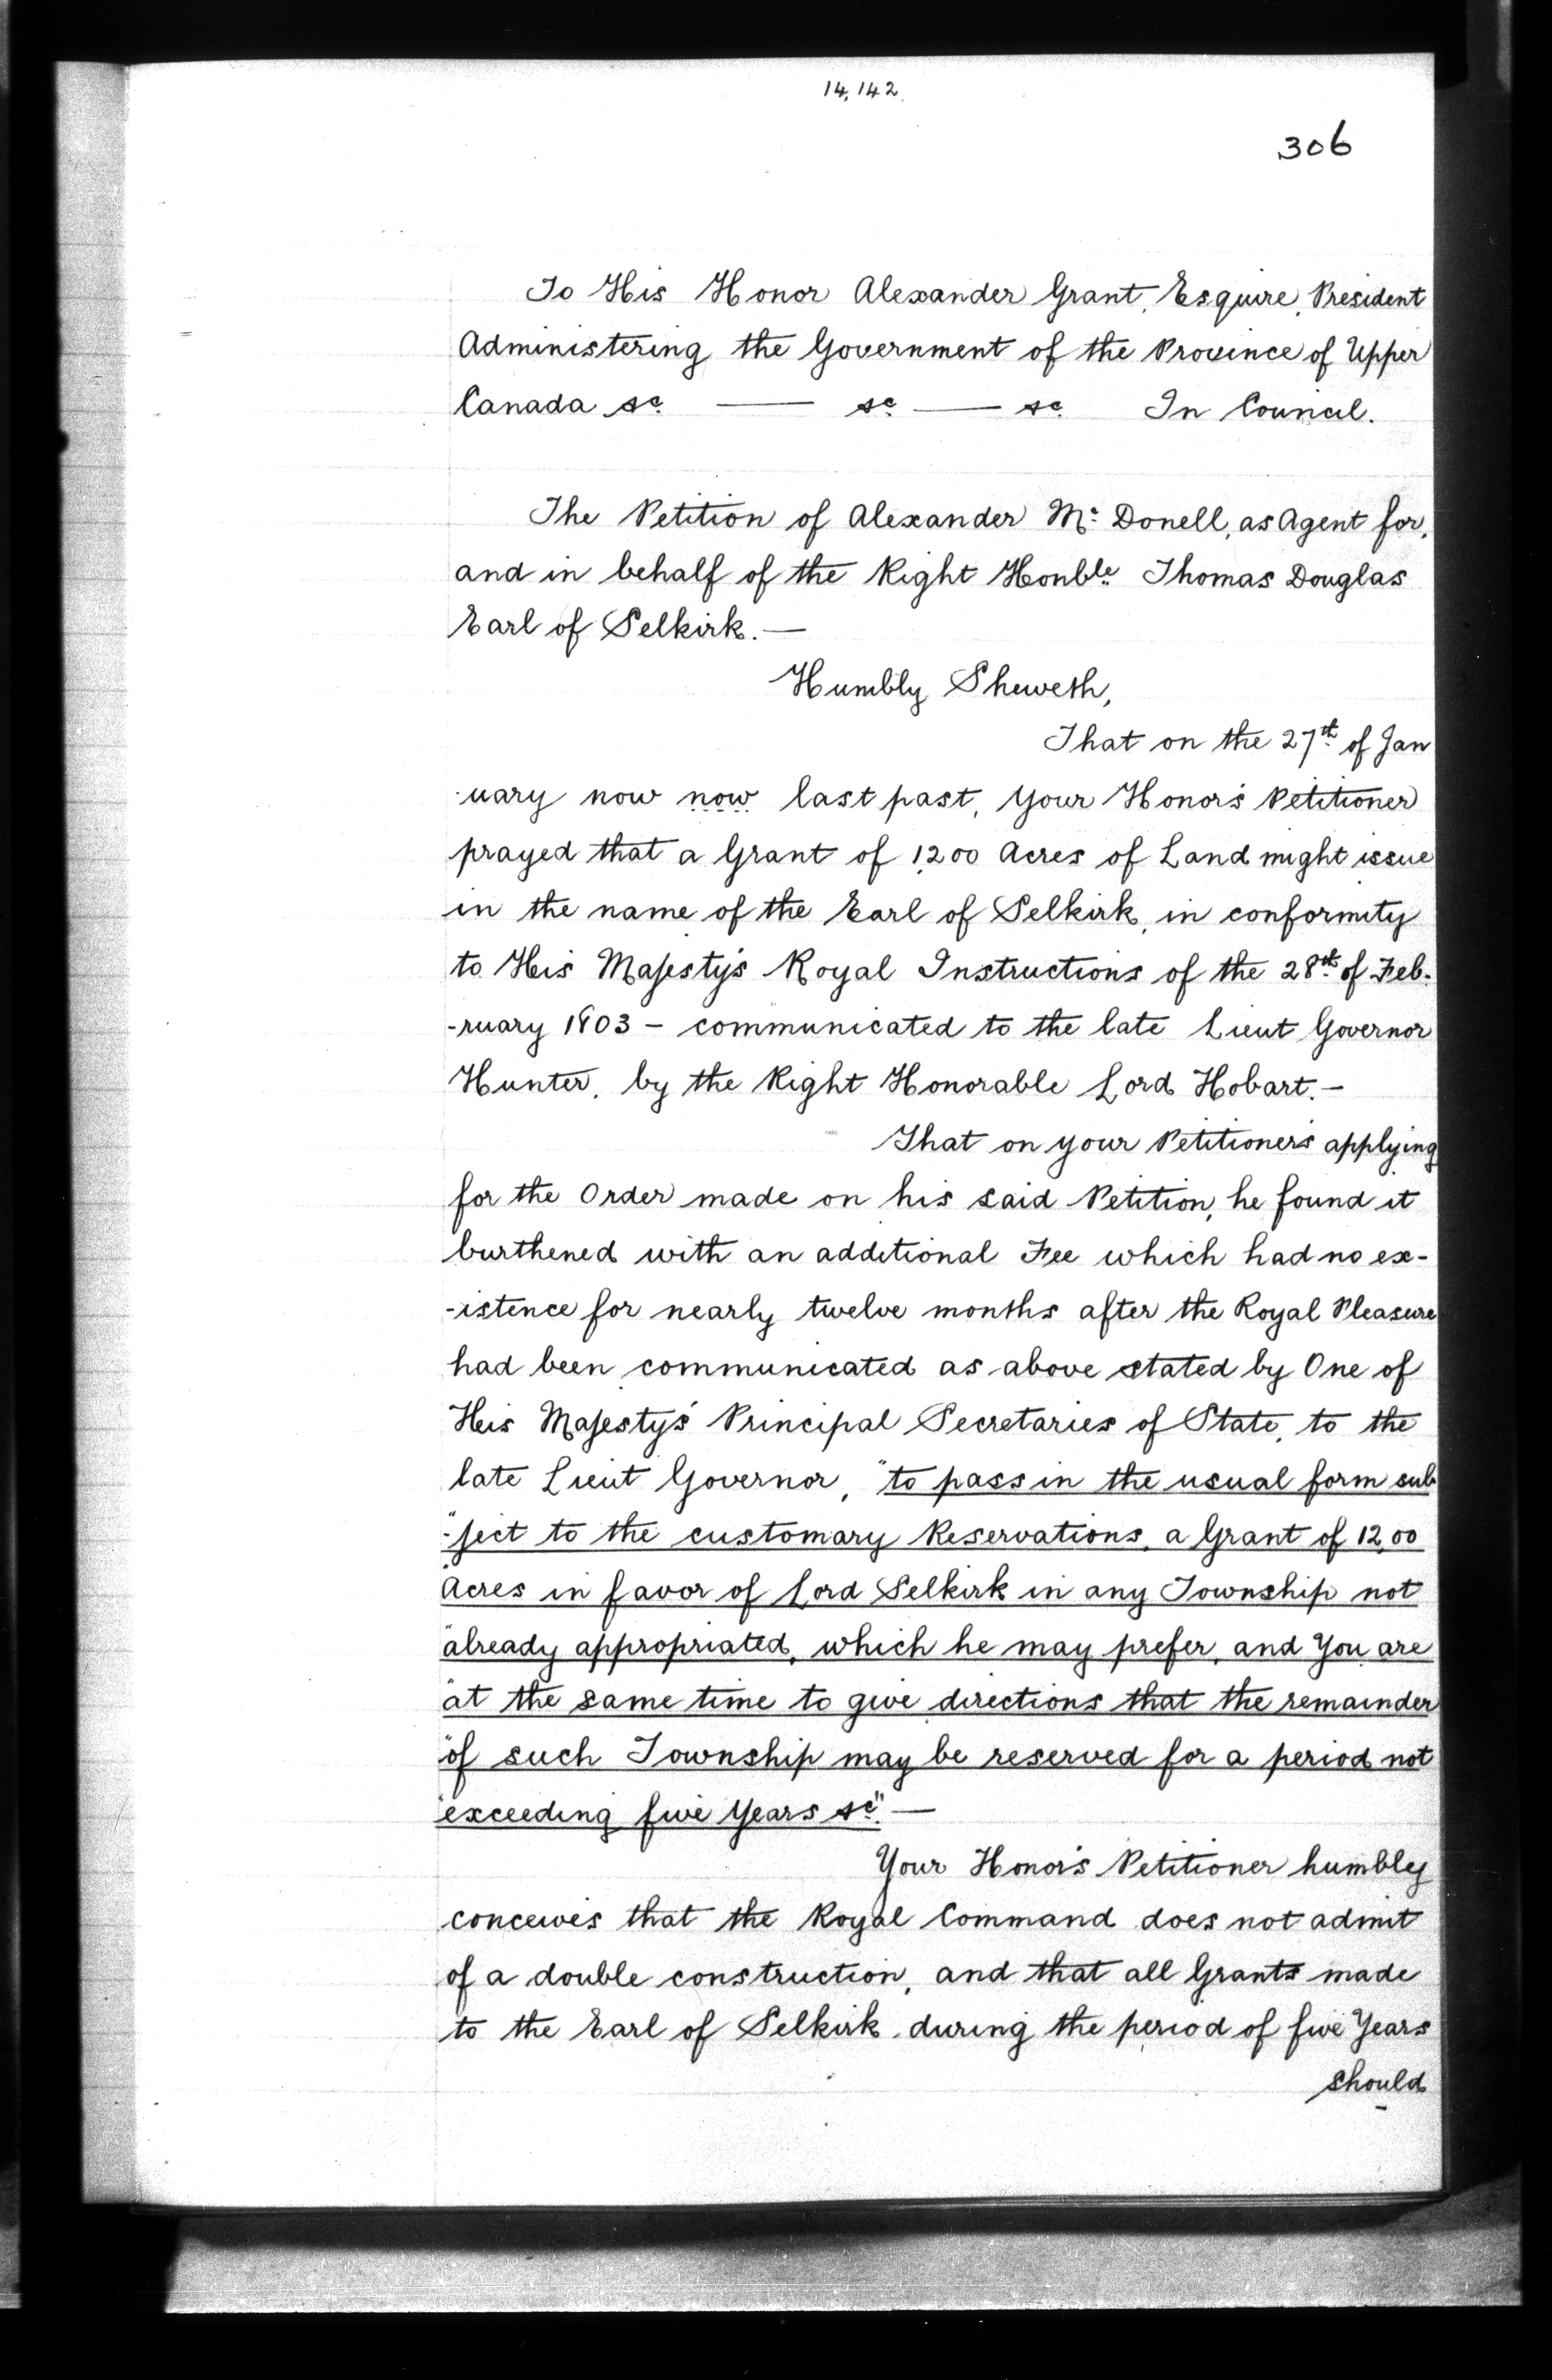 14,142
306
To His Honor Alexander Grant, Esquire, President
Administering the Government of the Province of Upper
Canada &c. —— &c. —— &c. In Council.
The Petition of Alexander Mc. Donell, as Agent for,
and in behalf of the Right Honble. Thomas Douglas
Earl of Selkirk. —
Humbly Sheweth,
That on the 27th. of Jan
-uary now now last past, Your Honor's Petitioner
prayed that a Grant of 1,200 Acres of Land might issue
in the name of the Earl of Selkirk, in conformity
to His Majesty's Royal Instructions of the 28th. of Feb-
-ruary 1803 - communicated to the late Lieut Governor
Hunter, by the Right Honorable Lord Hobart. -
That on your Petitioner's applying
for the Order made on his said Petition, he found it
burthened with an additional Fee which had no ex-
-istence for nearly twelve months after the Royal Pleasure
had been communicated as above stated by One of
His Majesty's Principal Secretaries of State, to the
late Lieut Governor, "to pass in the usual form sub
"-ject to the customary Reservations, a Grant of 12,00
"Acres in favor of Lord Selkirk in any Township not
"already appropriated, which he may prefer, and You are
"at the same time to give directions that the remainder
"of such Township may be reserved for a period not
"exceeding five Years &c." —
Your Honor's Petitioner humbly
conceives that the Royal Command does not admit
of a double construction, and that all Grants made
to the Earl of Selkirk during the period of five Years
should